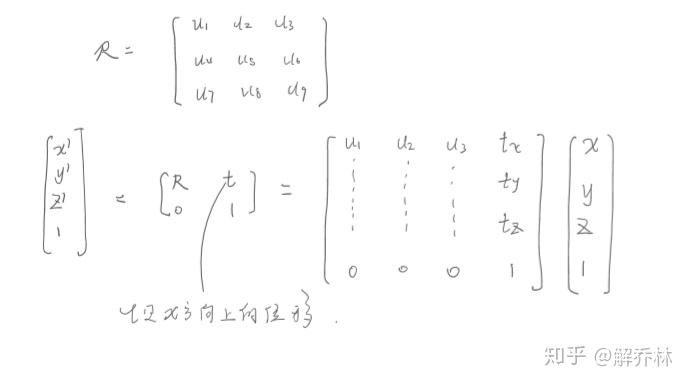 R = [ u1 u2 u3
u4 u5 u6
u7 u8 u9 ]
[ x' y' z' 1 ] = [ R t 0 1 ] = [ u1 u2 u3 tx
ty
tz
0 0 0 1 ] [ x y z 1 ]
t是x方向上的位移.
知乎 @解乔林